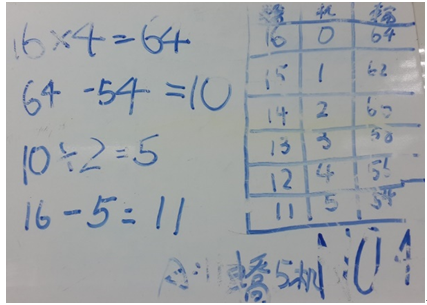 16×4=64
64-54=10
10÷2=5
16-5=11
16 0 64
15 1 62
14 2 60
13 3 58
12 4 56
11 5 54